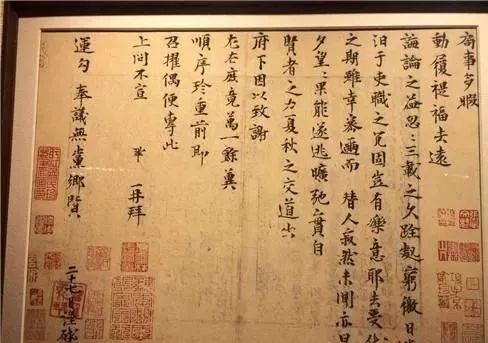 局事多暇
動履禔福去遠
誨論之益忽〻三載之久跧處窮徼日
汩于吏職之冗固豈有樂意耶去受代
之期雖幸密邇而替人寂然未聞亦旦
夕望〻果能遂逃曠弛實自
賢者之力夏秋之交道出
府下因以致謝
左右庶竟萬一餘冀
順序珍重前即
召擢偶便專此
上問不宣 鞏 再拜
運勾奉議無黨鄉賢
二十七日謹